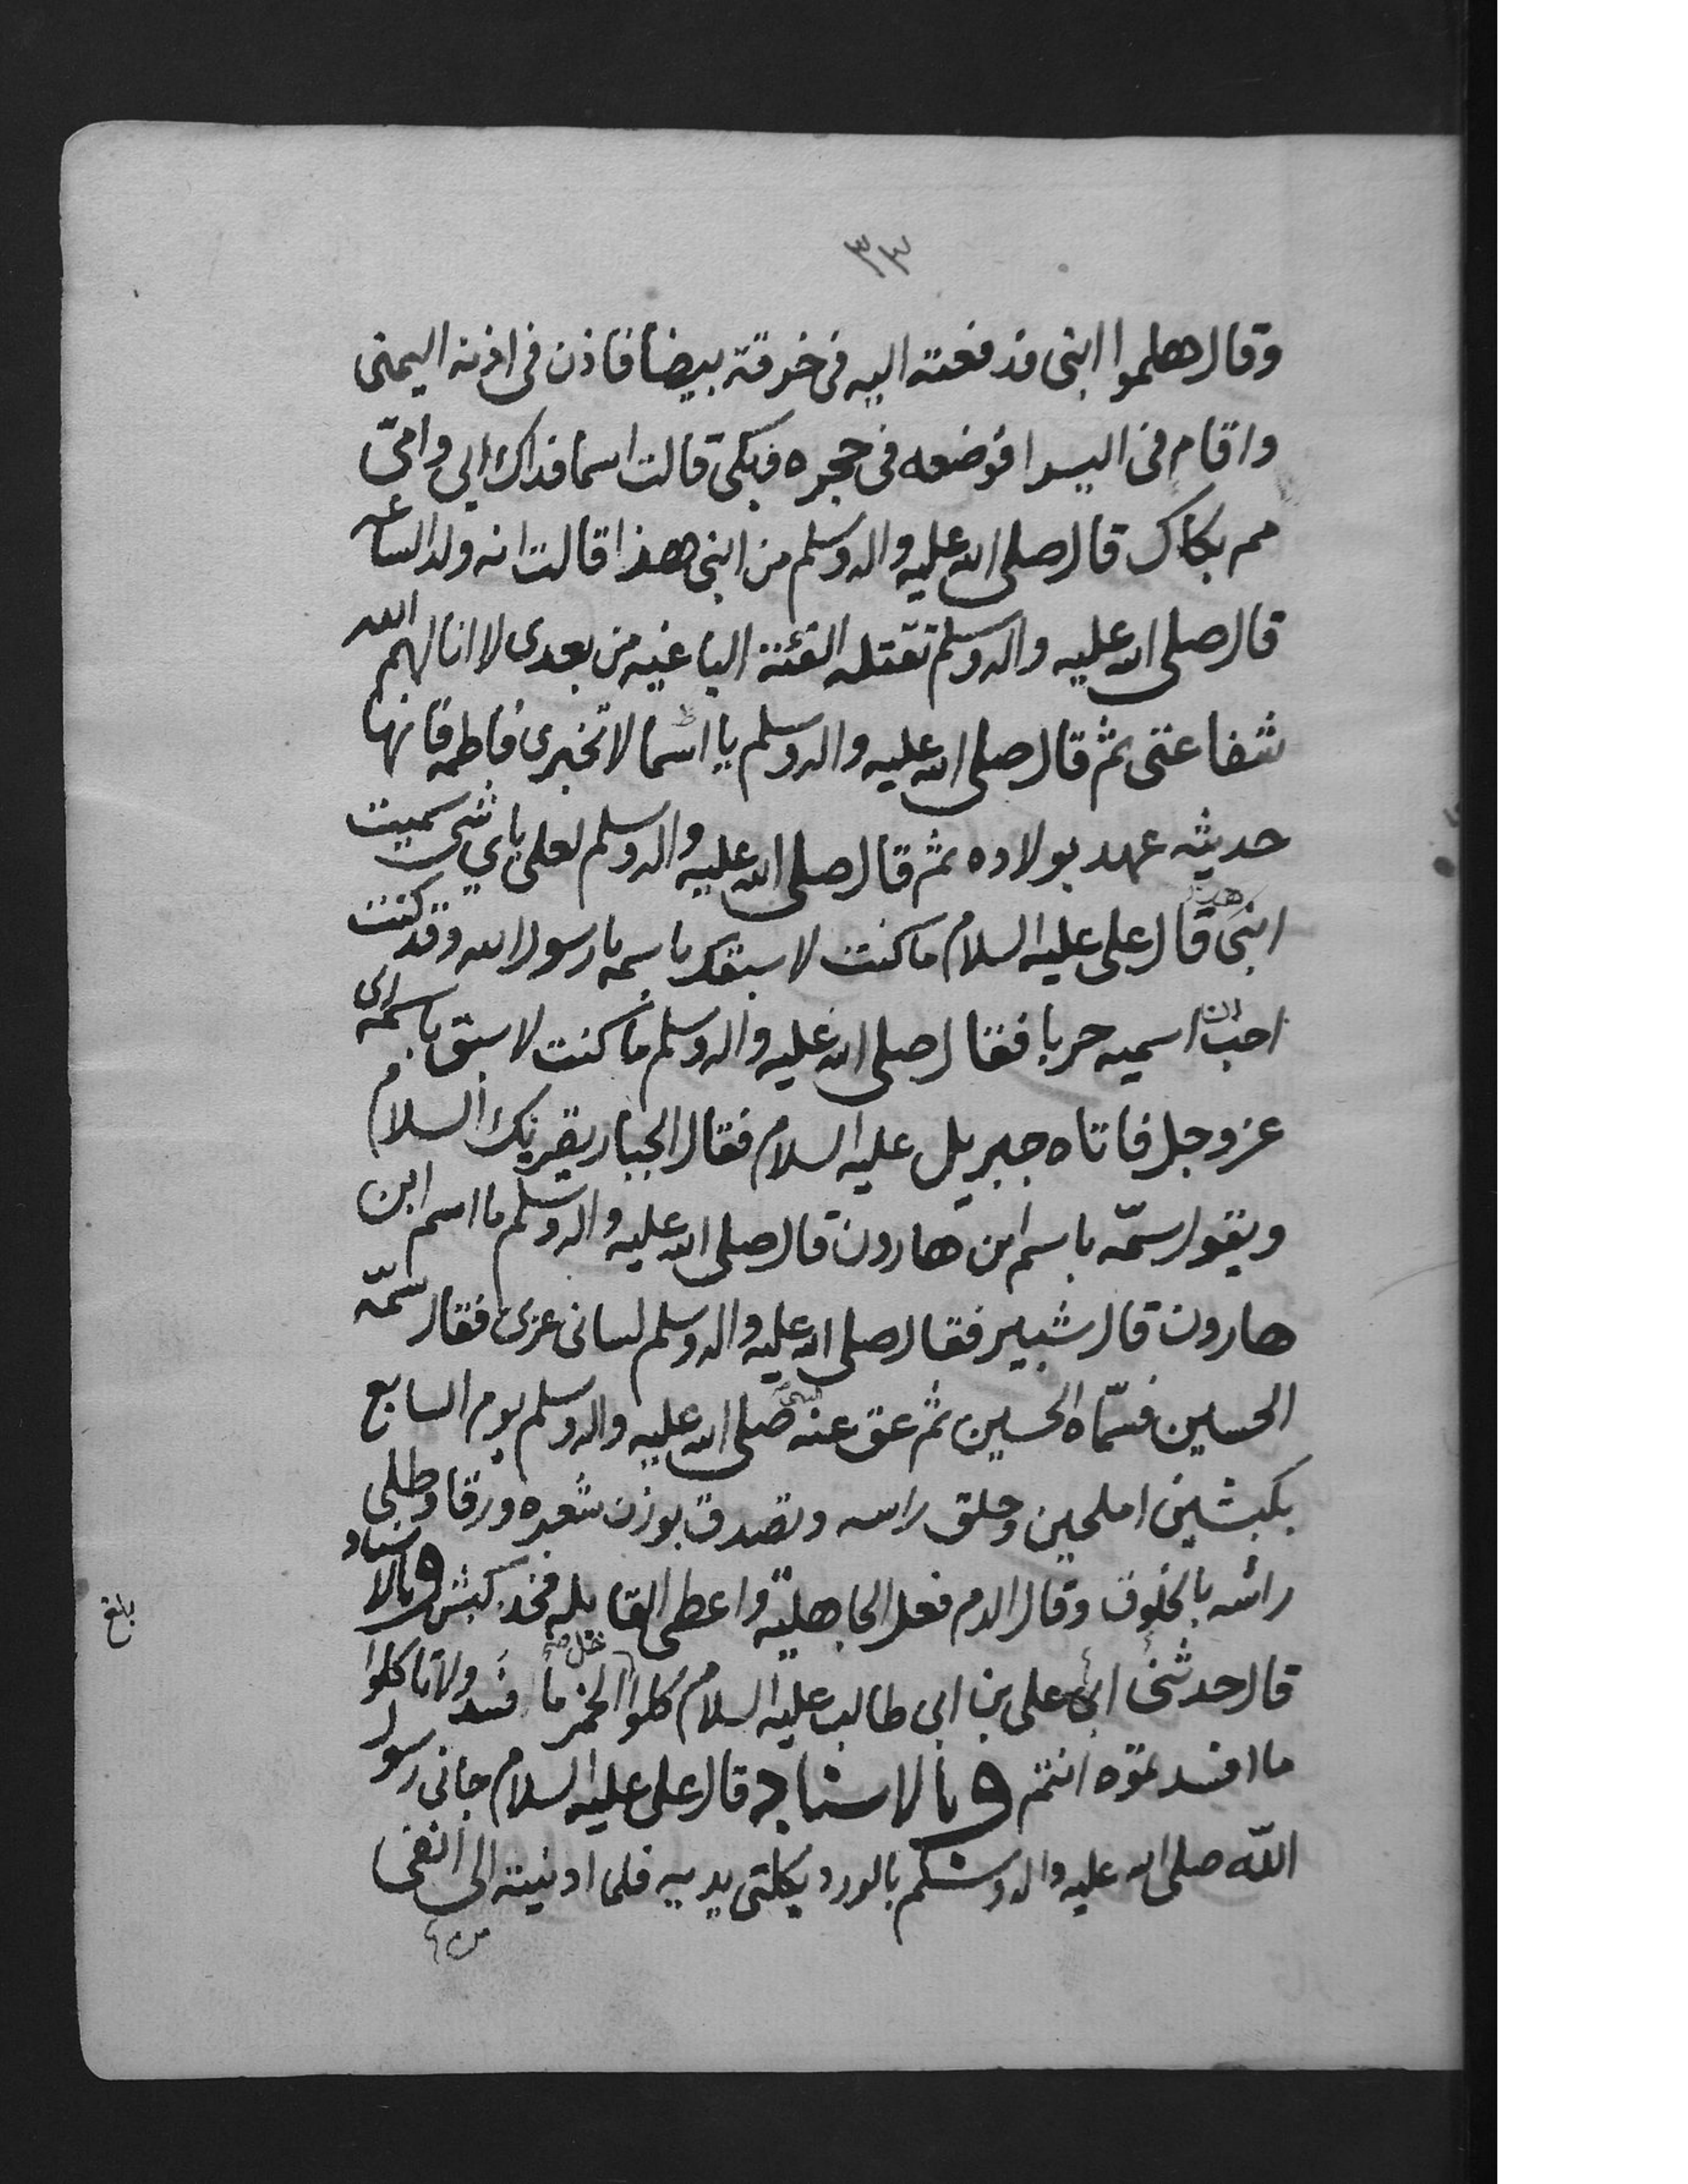 ٣٣
وقال هلموا ابنى فدفعته اليه فى خرقة بيضا فاذن فى اذنه اليمنى
واقام فى اليسرا فوضعه فى حجره فبكى قالت اسما فداك ابي وامّى
مم بكاك قال صلى الله عليه واله وسلم من ابنى هذا قالت انه ولد الساعه
قال صلى الله عليه واله وسلم تقتله الفئة الباغيه من بعدى لا انالهم الله
شفاعتى ثم قال صلى الله عليه واله وسلم يا اسما لا تخبرى فاطمه فانها
حديثه عهد بولاده ثم قال صلى الله عليه واله وسلم لعلى باي شى سميت
ابنى هذا قال على عليه السلام ما كنت لاسبقك باسمه يا رسول الله وقد كنت
احب ان اسميه حربا فقال صلى الله عليه واله وسلم ما كنت لاسبق باسمه ربى
عز وجل فاتاه جبريل عليه السلام فقال الجبار يقريك السلام
ويقول سمّه باسم ابن هارون قال صلى الله عليه واله وسلم ما اسم ابن
هارون قال شبير فقال صلى الله عليه واله وسلم لسانى عربى فقال سمّه
الحسين فسمّاه الحسين ثم عق عنه النبي صلى الله عليه واله وسلم يوم السابع
بكبشين املحين وحلق راسه وتصدق بوزن شعره ورقا وطلى
راسه بالخلوق وقال الدم فعل الجاهليّة واعطى القابله فخذ كبش وبالاسناد
قال حدثنى ابى على بن ابى طالب عليه السلام كلوا خل الخمر ما فسد ولا تاكلوا
ما افسدتموه انتم وبالاسناد قال على عليه السلام جانى رسول
اللّه صلى الله عليه واله وسلم بالورد بكلتى يديه فلما ادنيته الى انفى
بلغ